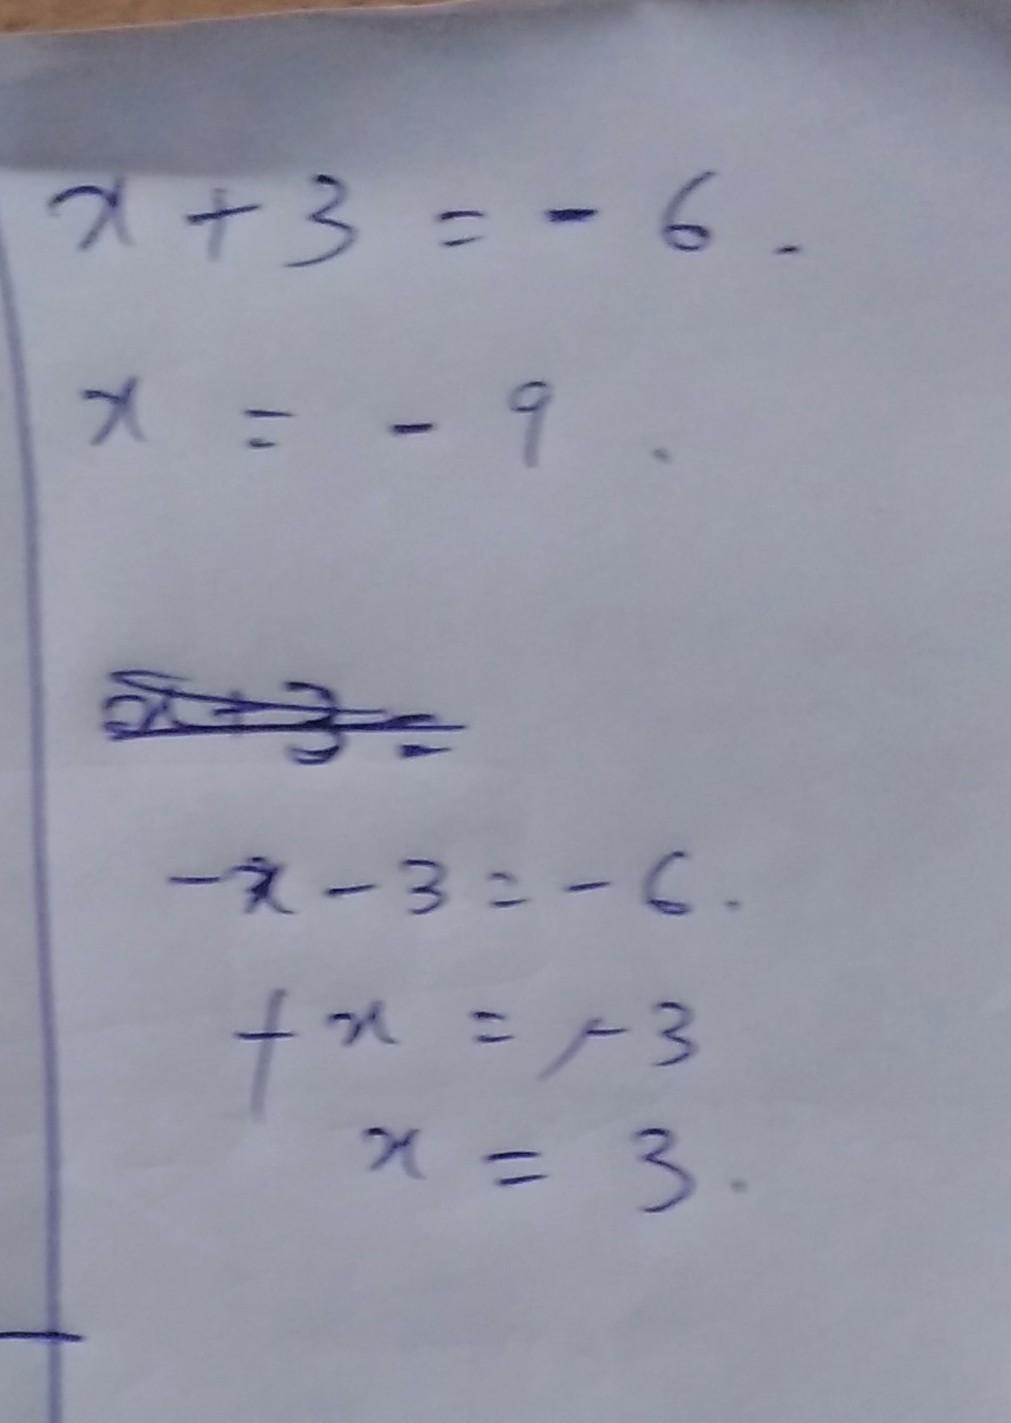 x + 3 = - 6 .
x = - 9 .
x + 3 =
-x - 3 = - 6 .
+ x = - 3
x = 3 .